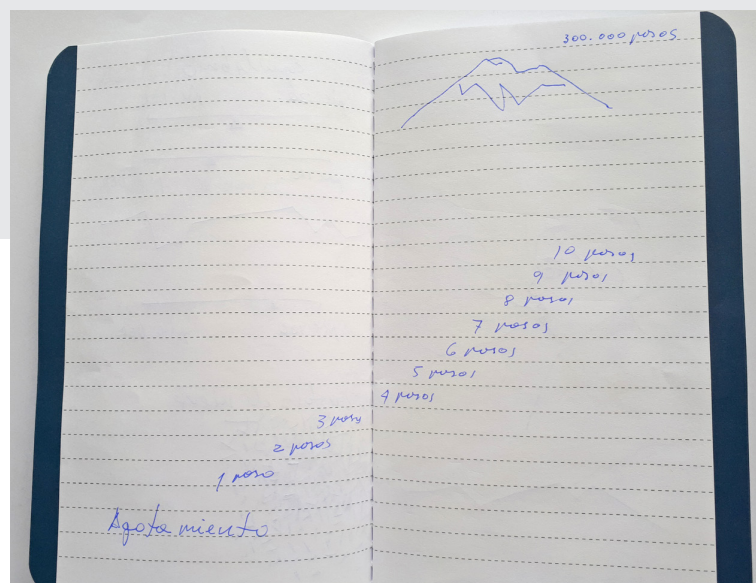 300.000 pasos
10 pasos
9 pasos
8 pasos
7 pasos
6 pasos
5 pasos
4 pasos
3 pasos
2 pasos
1 paso
Agotamiento